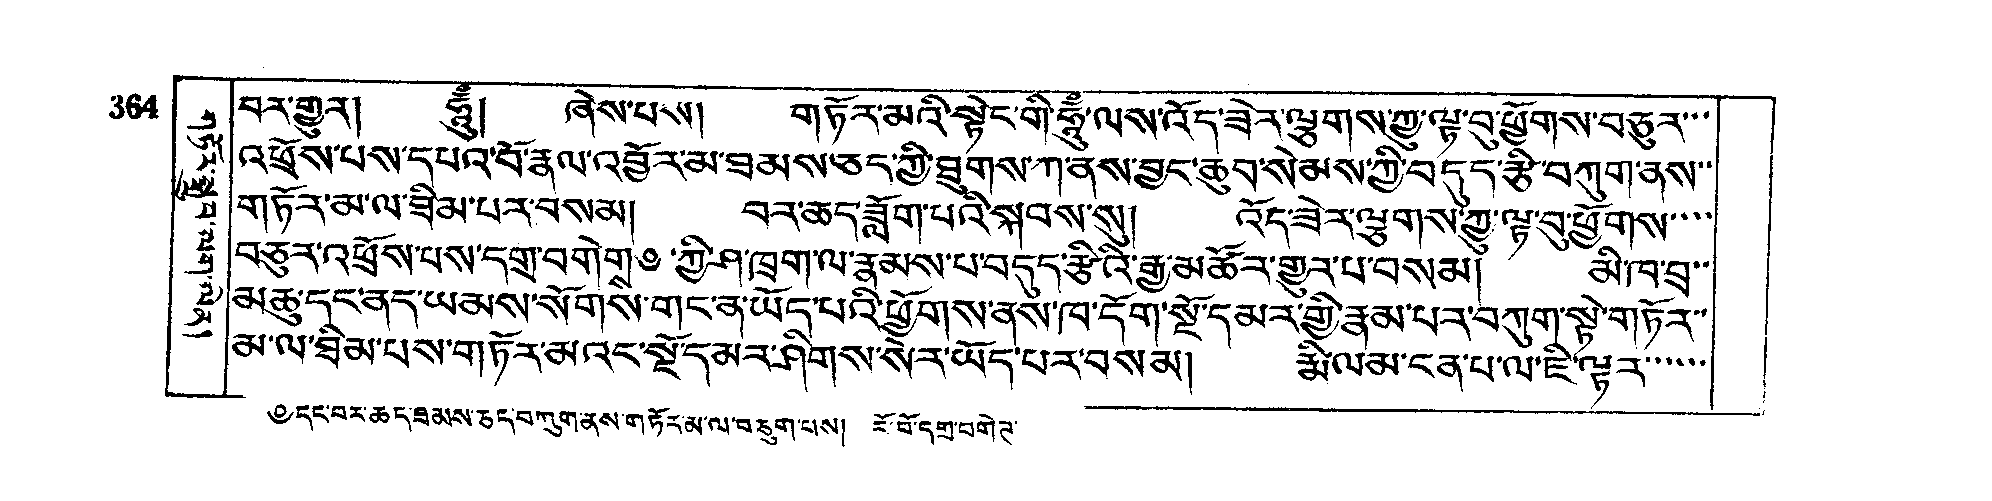 364
གཏོར་སྒྲུབ་ལག་ལེན།
བར་གྱུར། ཧཱུྃ། ཞེས་པས། གཏོར་མའི་སྟེང་གི་ཧཱུྃ་ལས་འོད་ཟེར་ལྕགས་ཀྱུ་ལྟ་བུ་ཕྱོགས་བཅུར་
འཕྲོས་པས་དཔའ་བོ་རྣལ་འབྱོར་མ་ཐམས་ཅད་ཀྱི་ཐུགས་ཀ་ནས་བྱང་ཆུབ་སེམས་ཀྱི་བདུད་རྩི་བཀུག་ནས་
གཏོར་མ་ལ་ཐིམ་པར་བསམ། བར་ཆད་ཟློག་པའི་སྐབས་སུ། འོད་ཟེར་ལྕགས་ཀྱུ་ལྟ་བུ་ཕྱོགས་
བཅུར་འཕྲོས་པས་དགྲ་བགེགྲ ༧ ཀྱི་ཤ་ཁྲག་ལ་རྣམས་པ་བདུད་རྩིའི་རྒྱ་མཚོར་གྱུར་པ་བསམ། མི་ཁ་བྲ་
མཆུ་དང་ནད་ཡམས་སོགས་གང་ན་ཡོད་པའི་ཕྱོགས་ནས་ཁ་དོག་སྔོ་དམར་གྱི་རྣམ་པར་བཀུག་སྟེ་གཏོར་
མ་ལ་ཐིམ་པས་གཏོར་མའང་སྔོ་དམར་ཤིགས་སེར་ཡོད་པར་བསམ། རྨི་ལམ་ངན་པ་ལ་ཇི་ལྟར་
༧དང་བར་ཆད་ཐམས་ཅད་བཀུག་ནས་གཏོར་མ་ལ་བཅུག་པས། རོ་བོ་དགྲ་བགེཊ་